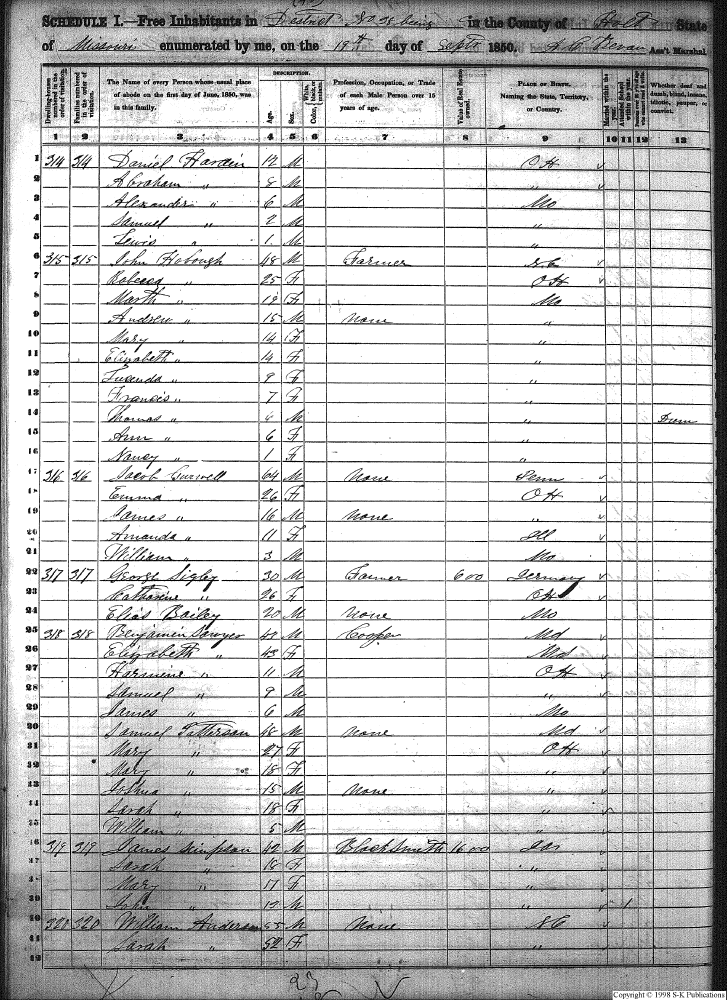 SCHEDULE I.—Free Inhabitants in District No 28 being in the County of Holt State
of Missouri enumerated by me, on the 19th day of Septr 1850. Ass't Marshal
Dwelling-houses numbered in the order of visitation.
Families numbered in the order of visitation.
The Name of every Person whose usual place of abode on the first day of June, 1850, was in this family.
DESCRIPTION.
Age.
Sex.
Color, White, black, or mulatto.
Profession, Occupation, or Trade of each Male Person over 15 years of age.
Value of Real Estate owned.
PLACE OF BIRTH. Naming the State, Territory, or Country.
Married within the year.
Whether deaf and dumb, blind, insane, idiotic, pauper, or convict.
1 2 3 4 5 6 7 8 9 10 11 12 13
1 314 314 Daniel Hardin 12 M OH
2 Abraham " 8 M "
3 Alexander " 6 M Mo
4 Samuel " 2 M "
5 Lewis " 1 M "
6 315 315 John 48 M Farmer N.C
7 Rebecca " 25 F OH
8 Marth " 19 F Mo
9 Andrew " 15 M None "
10 Mary " 14 F "
11 Elizabeth " 14 F "
12 Lucinda " 9 F "
13 Francis " 7 F "
14 Thomas " 4 M "
15 Ann " 6 F "
16 Nancy " 1 F "
17 316 316 Jacob 64 M None Penn
18 Emma " 26 F OH
19 James " 16 M None "
20 Amanda " 11 F Ill
21 William " 3 M Mo
22 317 317 George Sigley 30 M Farmer 600 Germany
23 Catharine " 26 F OH
24 Elias Bailey 20 M None Mo
25 318 318 Benjamin Sawyer 49 M Cooper Md
26 Elizabeth " 43 F Md
27 Harmine " 11 M OH
28 Samuel " 9 M "
29 James " 6 M Mo
30 Samuel Patterson 48 M None Md
31 Mary " 27 F OH
32 Mary " 18 F "
33 Joshua " 15 M None "
34 Sarah " 18 F "
35 William " 5 M "
36 319 319 James Simpson 42 M BlackSmith 1600
37 Sarah " 18 F "
38 Mary " 17 F "
39 John " 12 M " 1
40 320 320 William Anderson 55 M None N.C
41 Sarah " 52 F "
42
23
Copyright © 1998 S-K Publications